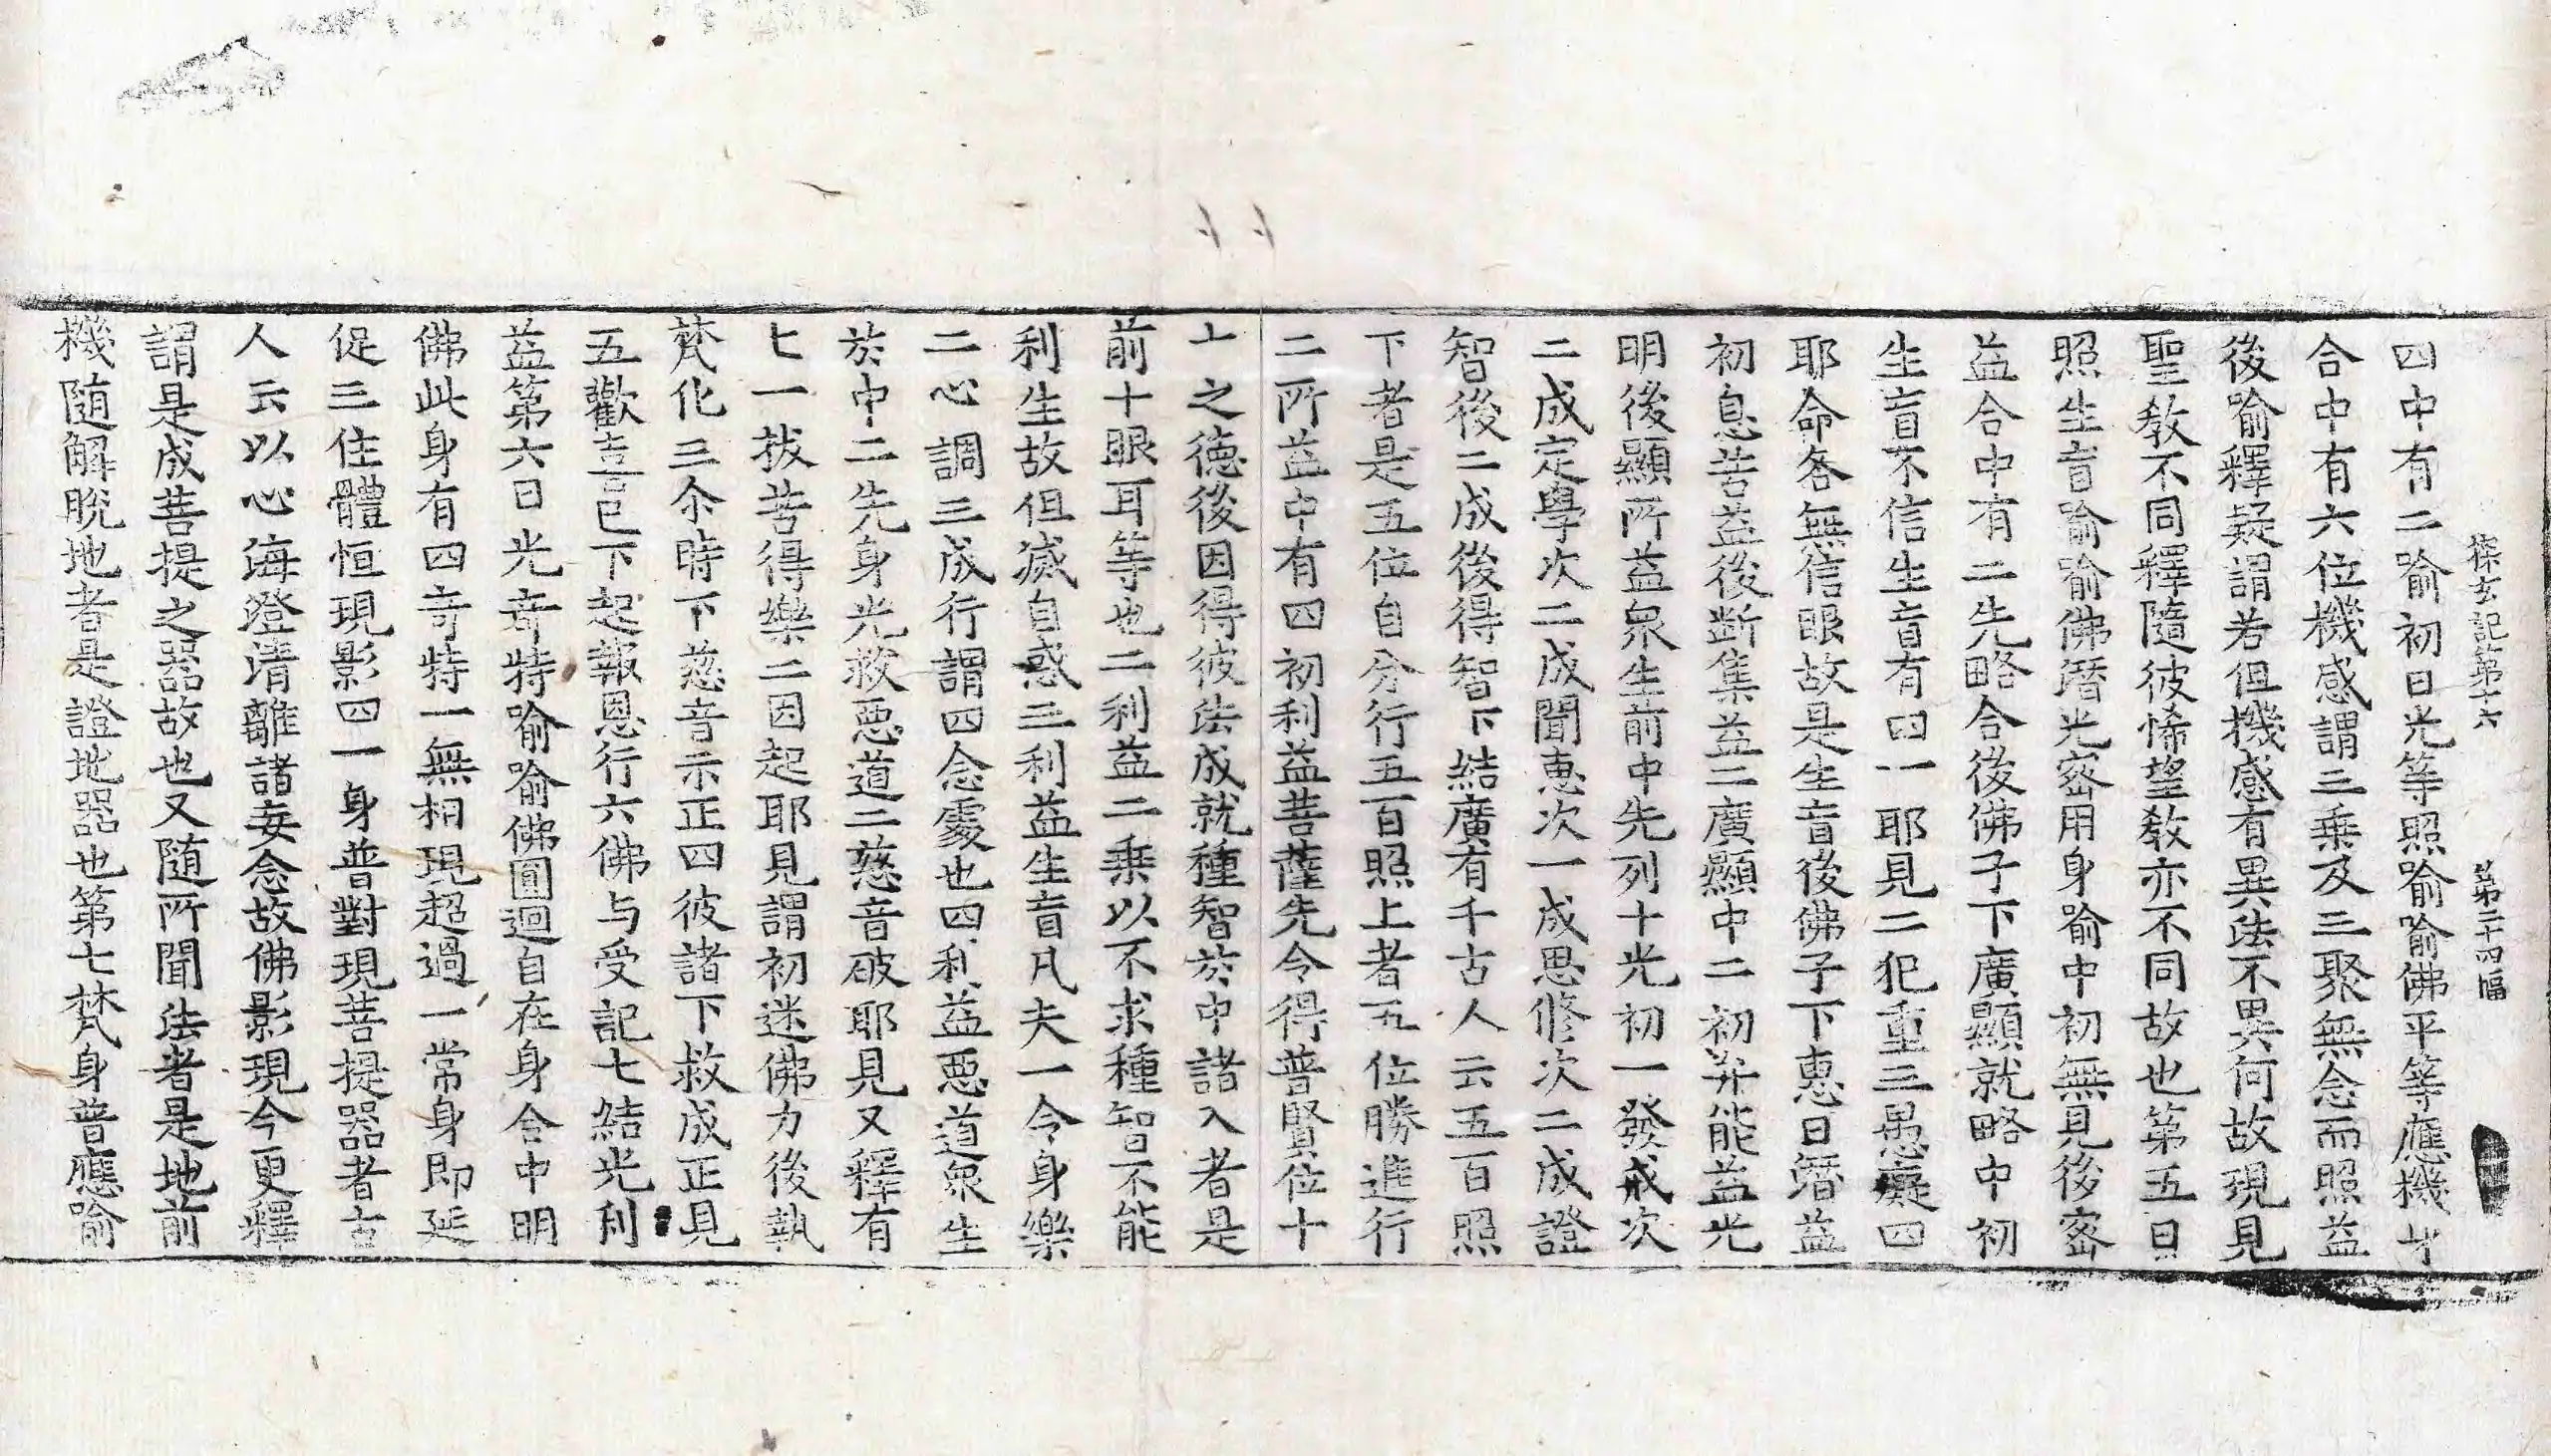 探玄記第十六　第二十四幅
四中有二喻初日光等照喻喻佛平等應機
合中有六位機感謂三乗及三聚無念而照益
後喻釋疑謂若但機感有異法不異何故現見
聖教不同釋隨彼悕望教亦不同故也第五日
照生盲喻喻佛潛光密用身喻中初無見後密
益合中有二先略合後佛子下廣顯就略中初
生盲不信生盲有四一耶見二犯重三愚癡四
耶命各無信眼故是生盲後佛子下惠日潛益
初息苦益後断集益二廣顯中二初并能益光
明後顯所益衆生前中先列十光初一發戒次
二成定學次二成聞惠次一成思修次二成證
智後二成後得智下結廣有千古人云五百照
下者是五位自分行五百照上者五位勝進行
二所益中有四初利益菩薩先令得普賢位十
之德後因得彼法成就種智於中諸入者是
前十眼耳等也二利益二乗以不求種智不能
利生故但滅自惑三利益生盲凡夫一令身樂
二心調三成行謂四念處也四利益惡道衆生
於中二先身光救惡道二慈音破耶見又釋有
七一拔苦得樂二因起耶見謂初迷佛力後執
梵化三尒時下慈音示正四彼諸下救成正見
五歡喜已下起報恩行六佛与受記七結光利
益第六日光竒特喻喻佛圓迴自在身合中明
佛此身有四竒特一無相現超過一常身即延
促三住體恒現影四一身普對現菩提器者古
人云以心海澄清離諸妄念故佛影現今更釋
謂是成菩提之器故也又随所聞法者是地前
機随解脫地者是證地器也第七梵身普應喻